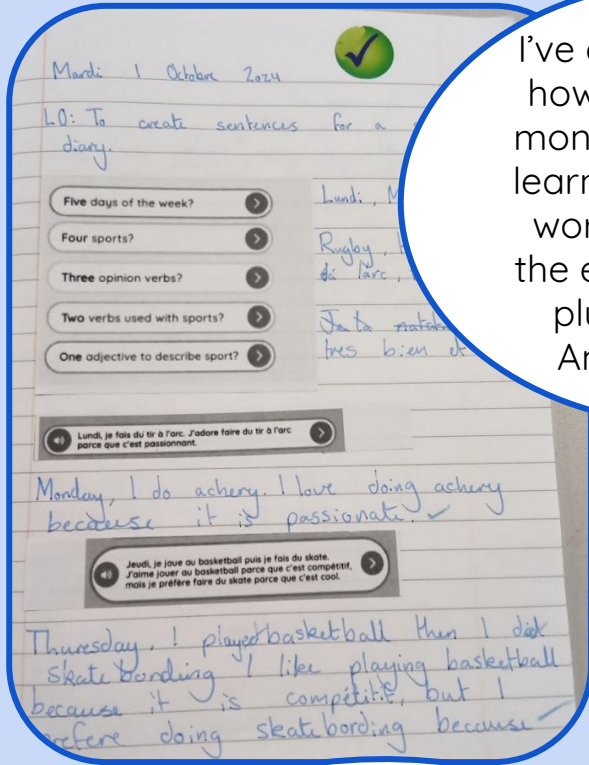 Mardi 1 Octobre 2024
LO: To create sentences for a
diary.
Five days of the week?
Four sports?
Three opinion verbs?
Two verbs used with sports?
One adjective to describe sport?
Lundi, M
Rugby,
tres bien et
Lundi, je fais du tir à l'arc. J'adore faire du tir à l'arc
parce que c'est passionnant.
Monday, I do achery. I love doing achery
because it is passionate.
Jeudi, je joue au basketball puis je fais du skate.
J'aime jouer au basketball parce que c'est compétitif,
mais je préfère faire du skate parce que c'est cool.
Thuresday, I played basketball then I did
skate bording I like playing basketball
because it is competitif, but I
prefere doing skatebording because
I've
how
mon
learn
wor
the e
plu